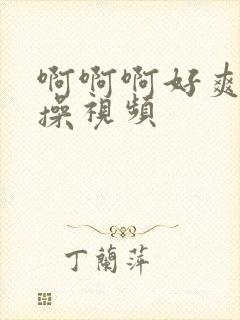 啊啊啊好爽
操視頻
丁蘭萍